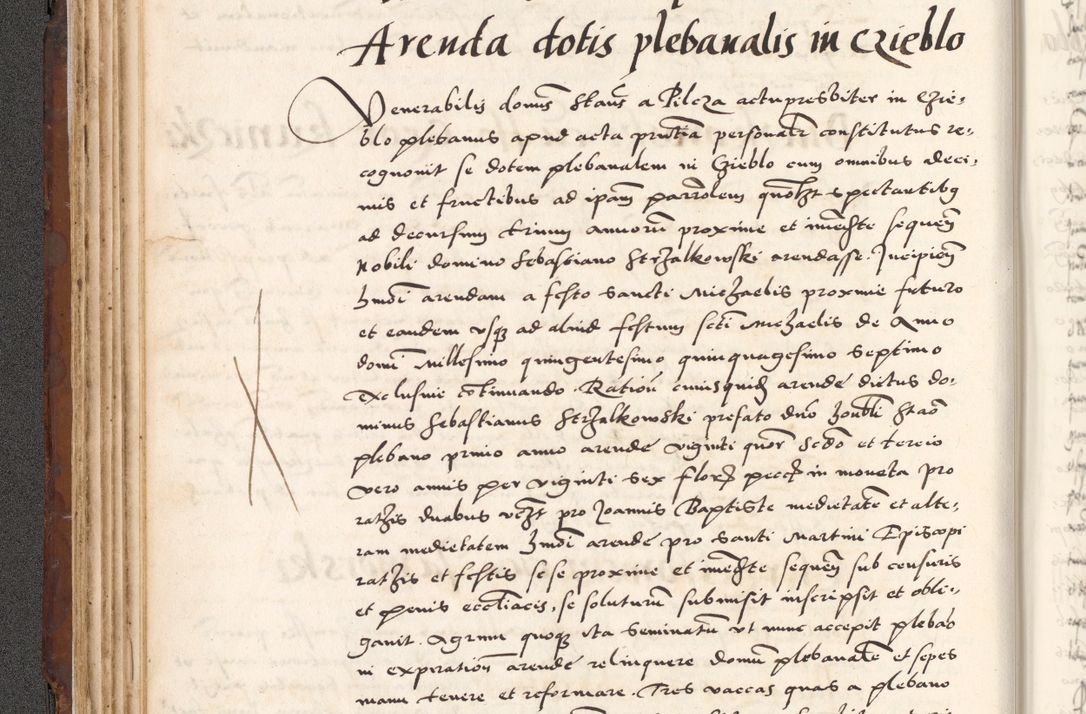 Arenda dotis plebanalis in Czieblo
Venerabilis domus Staus a Pilcza actu presbiter in Czie-
blo plebanus apud acta pntia personalr constitutus re-
cognovit se dotem plebanalem in Czieblo cum omnibus deci-
mis et fructibus ad ipam parrolem quolzt spectantibus
ad decursum trium annorum proxime et imedte sequen
Nobili domino Sebastiano Strzalkowski arendasse. Incipien
hmoi arendam a festo sancti Michaelis proxime futuro
et eandem usque ad aliud festum scti Michaelis de Anno
domi Millesimo quingentesimo quinquagesimo septimo
exclusive continuando. Ration cuiusquid arende dictus do-
minus Sebastianus Strzalkowski prefato dno honbli Stao
plebano primo anno arende viginti quor scdo et tercio
vero annis per viginti sex flor pecc in moneta pro
rathis duabus vczt pro Joannis Baptiste medietatem et alte-
ram medietatem hmoi arende pro santi Martini Episcopi
rathis et festis sese proxime et imedte sequen sub censuris
et penis eccliacis, se soluturum submisit inscripsit et obli-
gavit. Agrum quoque ita seminatum ut nunc accepit plebao
in expiration arende relinquere domum plebanalem et sepes
manu tenere et reformare. Tres vaccas quas a plebano